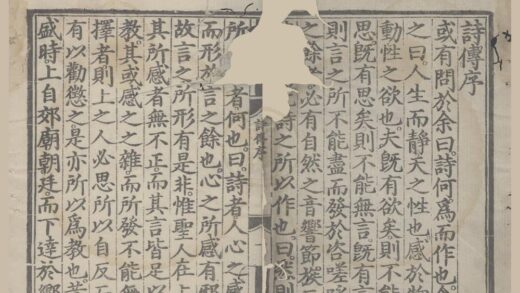 詩傳序
或有問於余曰。詩何爲而作也。
之曰。人生而靜。天之性也。感於物
動。性之欲也。夫旣有欲矣。則不能
思。旣有思矣。則不能無言。旣有言
則言之所不能盡。而發於咨嗟
之餘 必有自然之音響節族
詩之所以作也。曰。 則
詩傳序
所 者何也。曰。詩者。人心之感
而形 言之餘也。心之所感有邪
故言之所形有是非。惟聖人在上
其所感者無不正。而其言皆足以
教。其或感之之雜。而所發不能無
擇者。則上之人必思所以自反
有以勸懲之。是亦所以爲教也。
盛時。上自郊廟朝廷。而下達於鄕